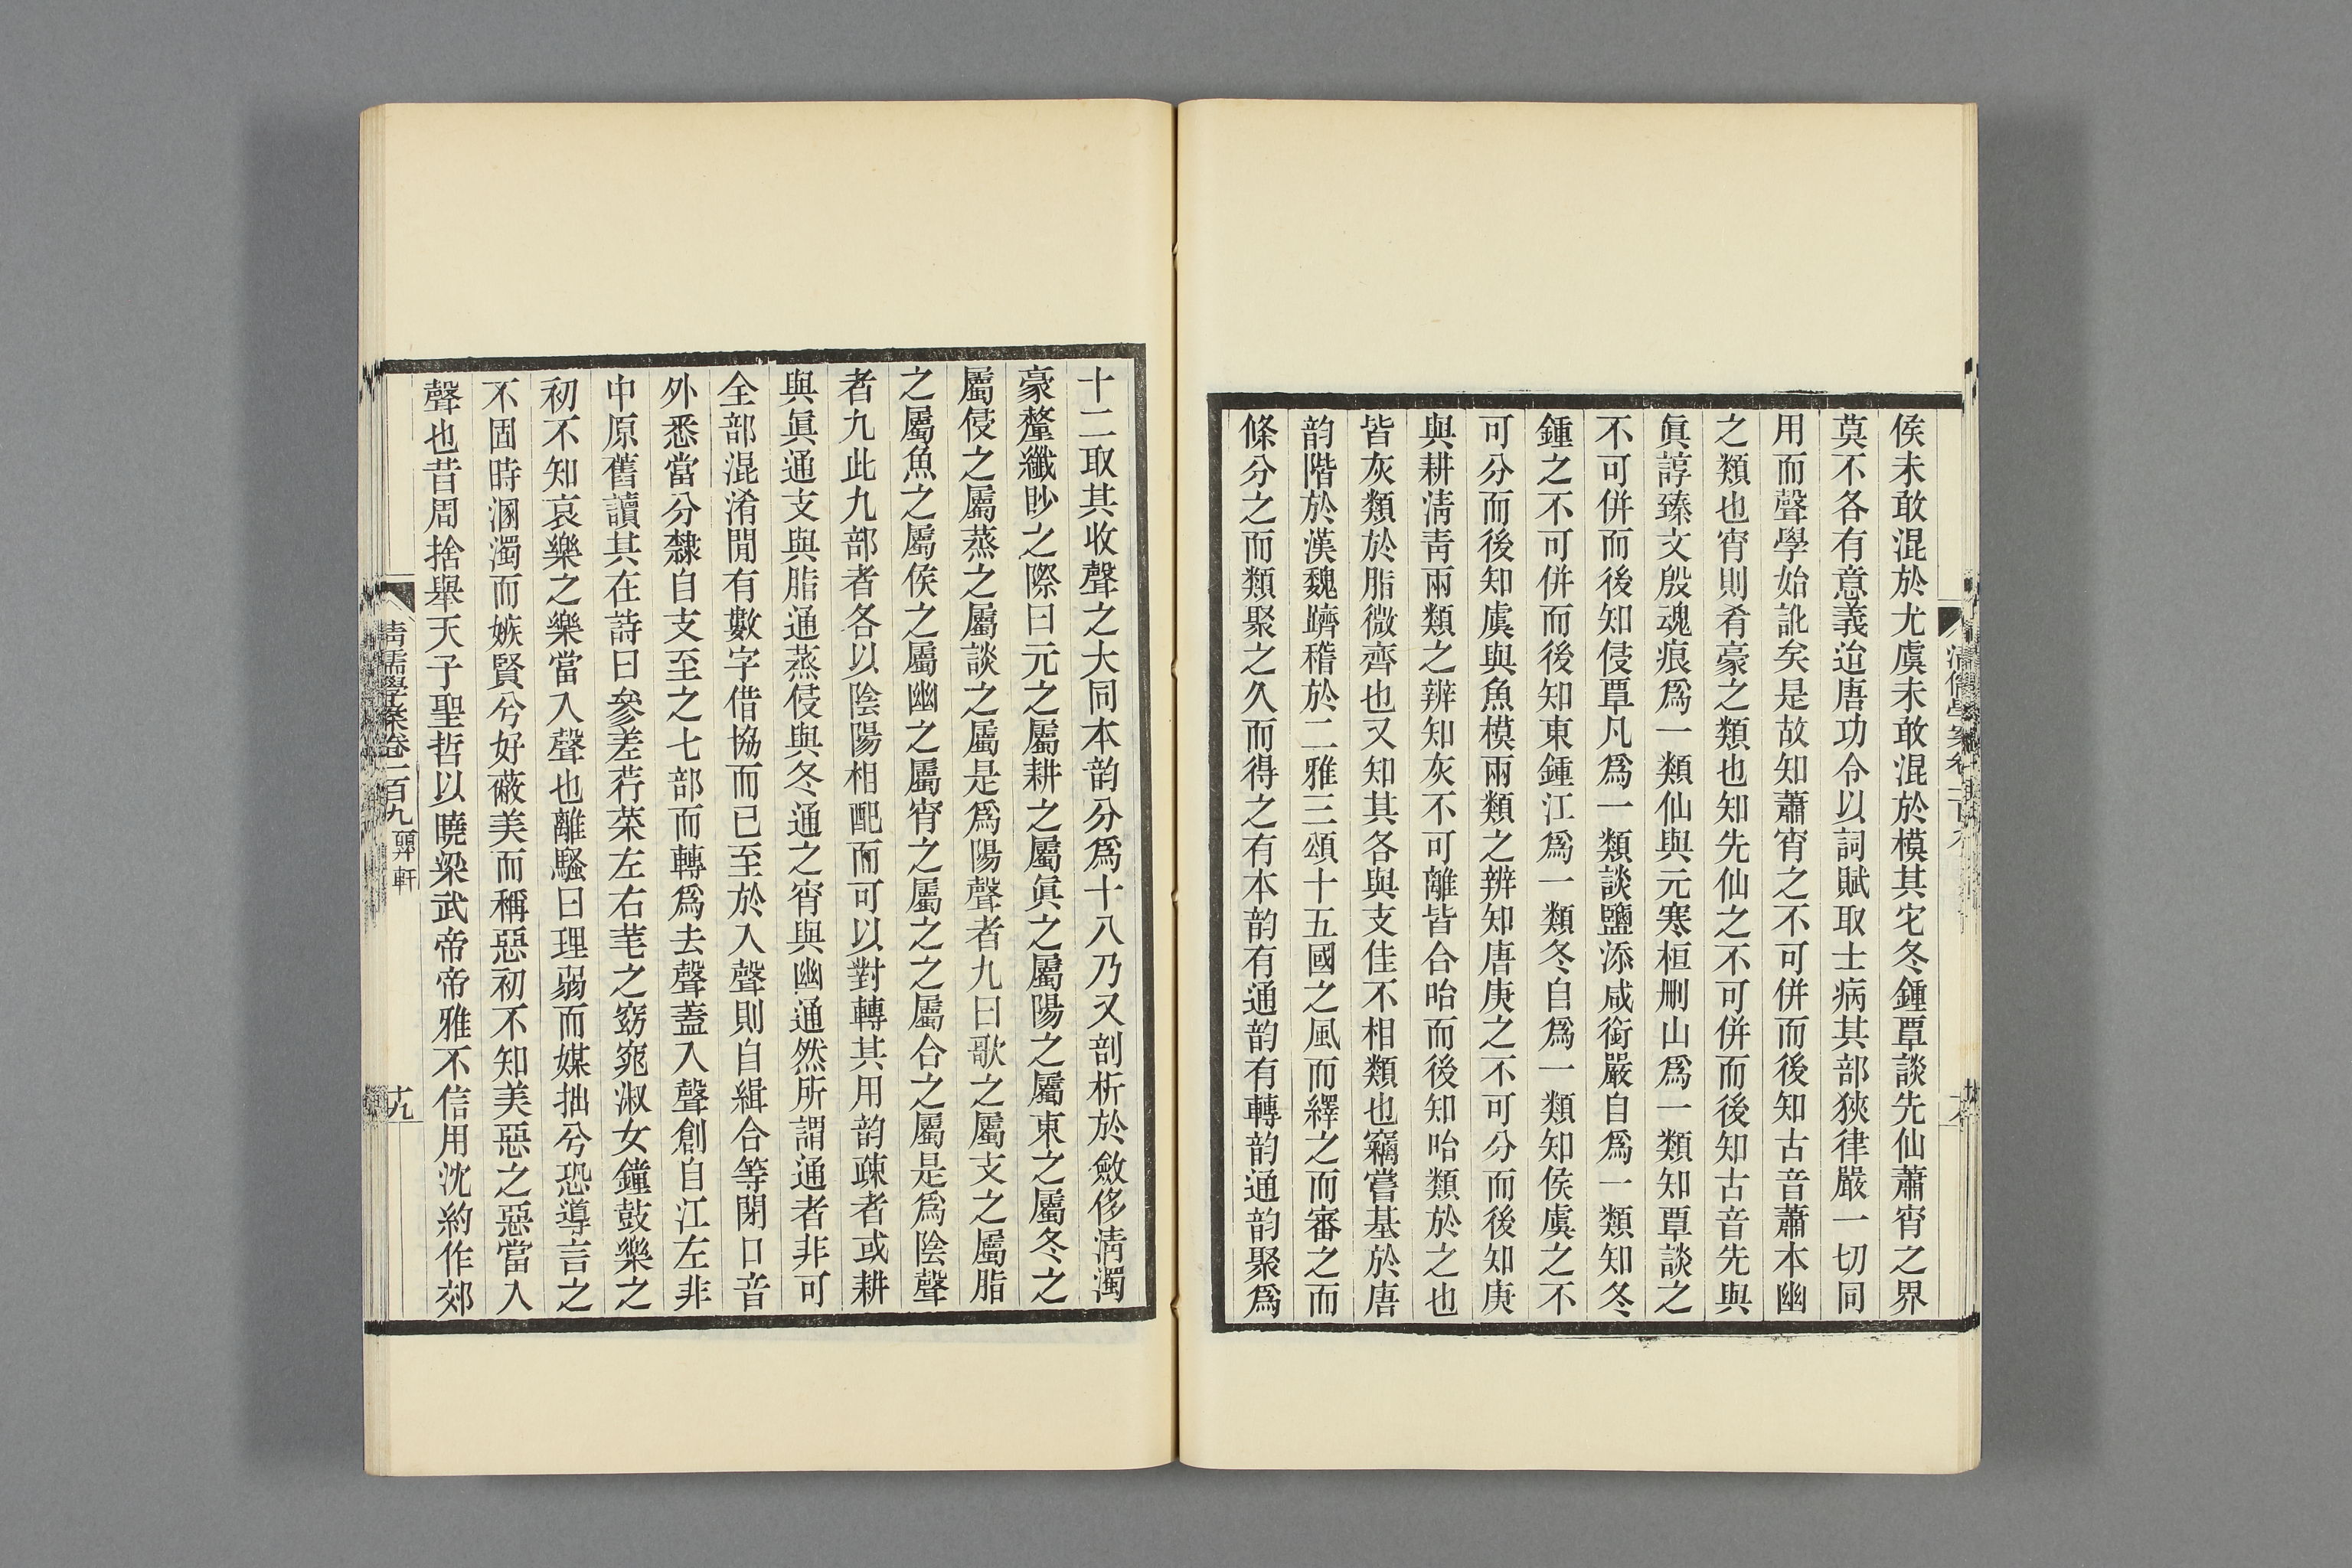 侯未敢混於尤虞未敢混於模其它冬鍾覃談先仙蕭宵之界
莫不各有意義迨唐功令以詞賦取士病其部狹律嚴一切同
用而聲學始訛矣是故知蕭宵之不可併而後知古音蕭本幽
之類也宵則肴豪之類也知先仙之不可併而後知古音先與
眞諄臻文殷魂痕爲一類仙與元寒桓刪山爲一類知覃談之
不可併而後知侵覃凡爲一類談鹽添咸銜嚴自爲一類知冬
鍾之不可併而後知東鍾江爲一類冬自爲一類知侯虞之不
可分而後知虞與魚模兩類之辨知唐庚之不可分而後知庚
與耕淸靑兩類之辨知灰不可離皆合咍而後知咍類於之也
皆灰類於脂微齊也又知其各與支佳不相類也竊嘗基於唐
韵階於漢魏躋稽於二雅三頌十五國之風而繹之而審之而
條分之而類聚之久而得之有本韵有通韵有轉韵通韵聚爲
十二取其收聲之大同本韵分爲十八乃又剖析於斂侈淸濁
豪釐纖眇之際曰元之屬耕之屬眞之屬陽之屬東之屬冬之
屬侵之屬蒸之屬談之屬是爲陽聲者九曰歌之屬支之屬脂
之屬魚之屬侯之屬幽之屬宵之屬之之屬合之屬是爲陰聲
者九此九部者各以陰陽相配而可以對轉其用韵疎者或耕
與眞通支與脂通蒸侵與冬通之宵與幽通然所謂通者非可
全部混淆閒有數字借協而已至於入聲則自緝合等閉口音
外悉當分隸自支至之七部而轉爲去聲蓋入聲創自江左非
中原舊讀其在詩曰參差荇菜左右芼之窈窕淑女鐘鼓樂之
初不知哀樂之樂當入聲也離騷曰理弱而媒拙兮恐導言之
不固時溷濁而嫉賢兮好蔽美而稱惡初不知美惡之惡當入
聲也昔周捨舉天子聖哲以曉梁武帝帝雅不信用沈約作郊
淸儒學案卷一百九 顨軒
十九